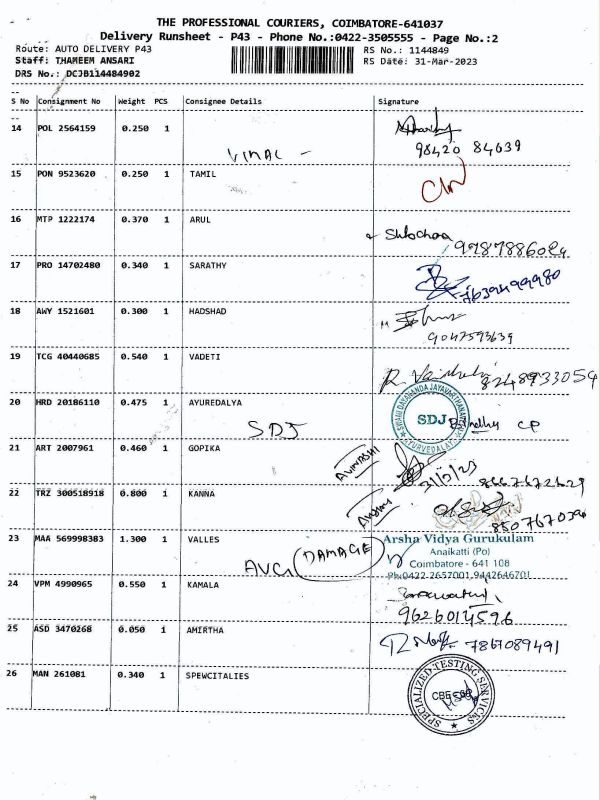 THE PROFESSIONAL COURIERS, COIMBATORE-641037
Delivery Runsheet - P43 - Phone No.:0422-3505555 - Page No.:2
Route: AUTO DELIVERY P43 RS No.: 1144849
Staff: THAMEEM ANSARI RS Date: 31-Mar-2023
DRS No.: DCJB114484902
S No Consignment No Weight PCS Consignee Details Signature
14 POL 2564159 0.250 1
VIMAL - 98420 84639
15 PON 9523620 0.250 1 TAMIL
16 MTP 1222174 0.370 1 ARUL
17 PRO 14702480 0.340 1 SARATHY
18 AWY 1521601 0.300 1 HADSHAD
9047593639
19 TCG 40440685 0.540 1 VADETI
8248933054
20 HRD 20186110 0.475 1 AYUREDALYA
SDJ SDJ CP
21 ART 2007961 0.460 1 GOPIKA
AVINASHI
22 TRZ 300518918 0.800 1 KANNA
23 MAA 569998383 1.300 1 VALLES
AVG (DAMAGE)
Arsha Vidya Gurukulam
Anaikatti (Po)
Coimbatore - 641 108
Ph:0422-2657001,9442646701
24 VPM 4990965 0.550 1 KAMALA
9626014596
25 ASD 3470268 0.050 1 AMIRTHA
7867089491
26 MAN 261081 0.340 1 SPEWCITALIES
SPECIALIZED TESTING SERVICES
CBE